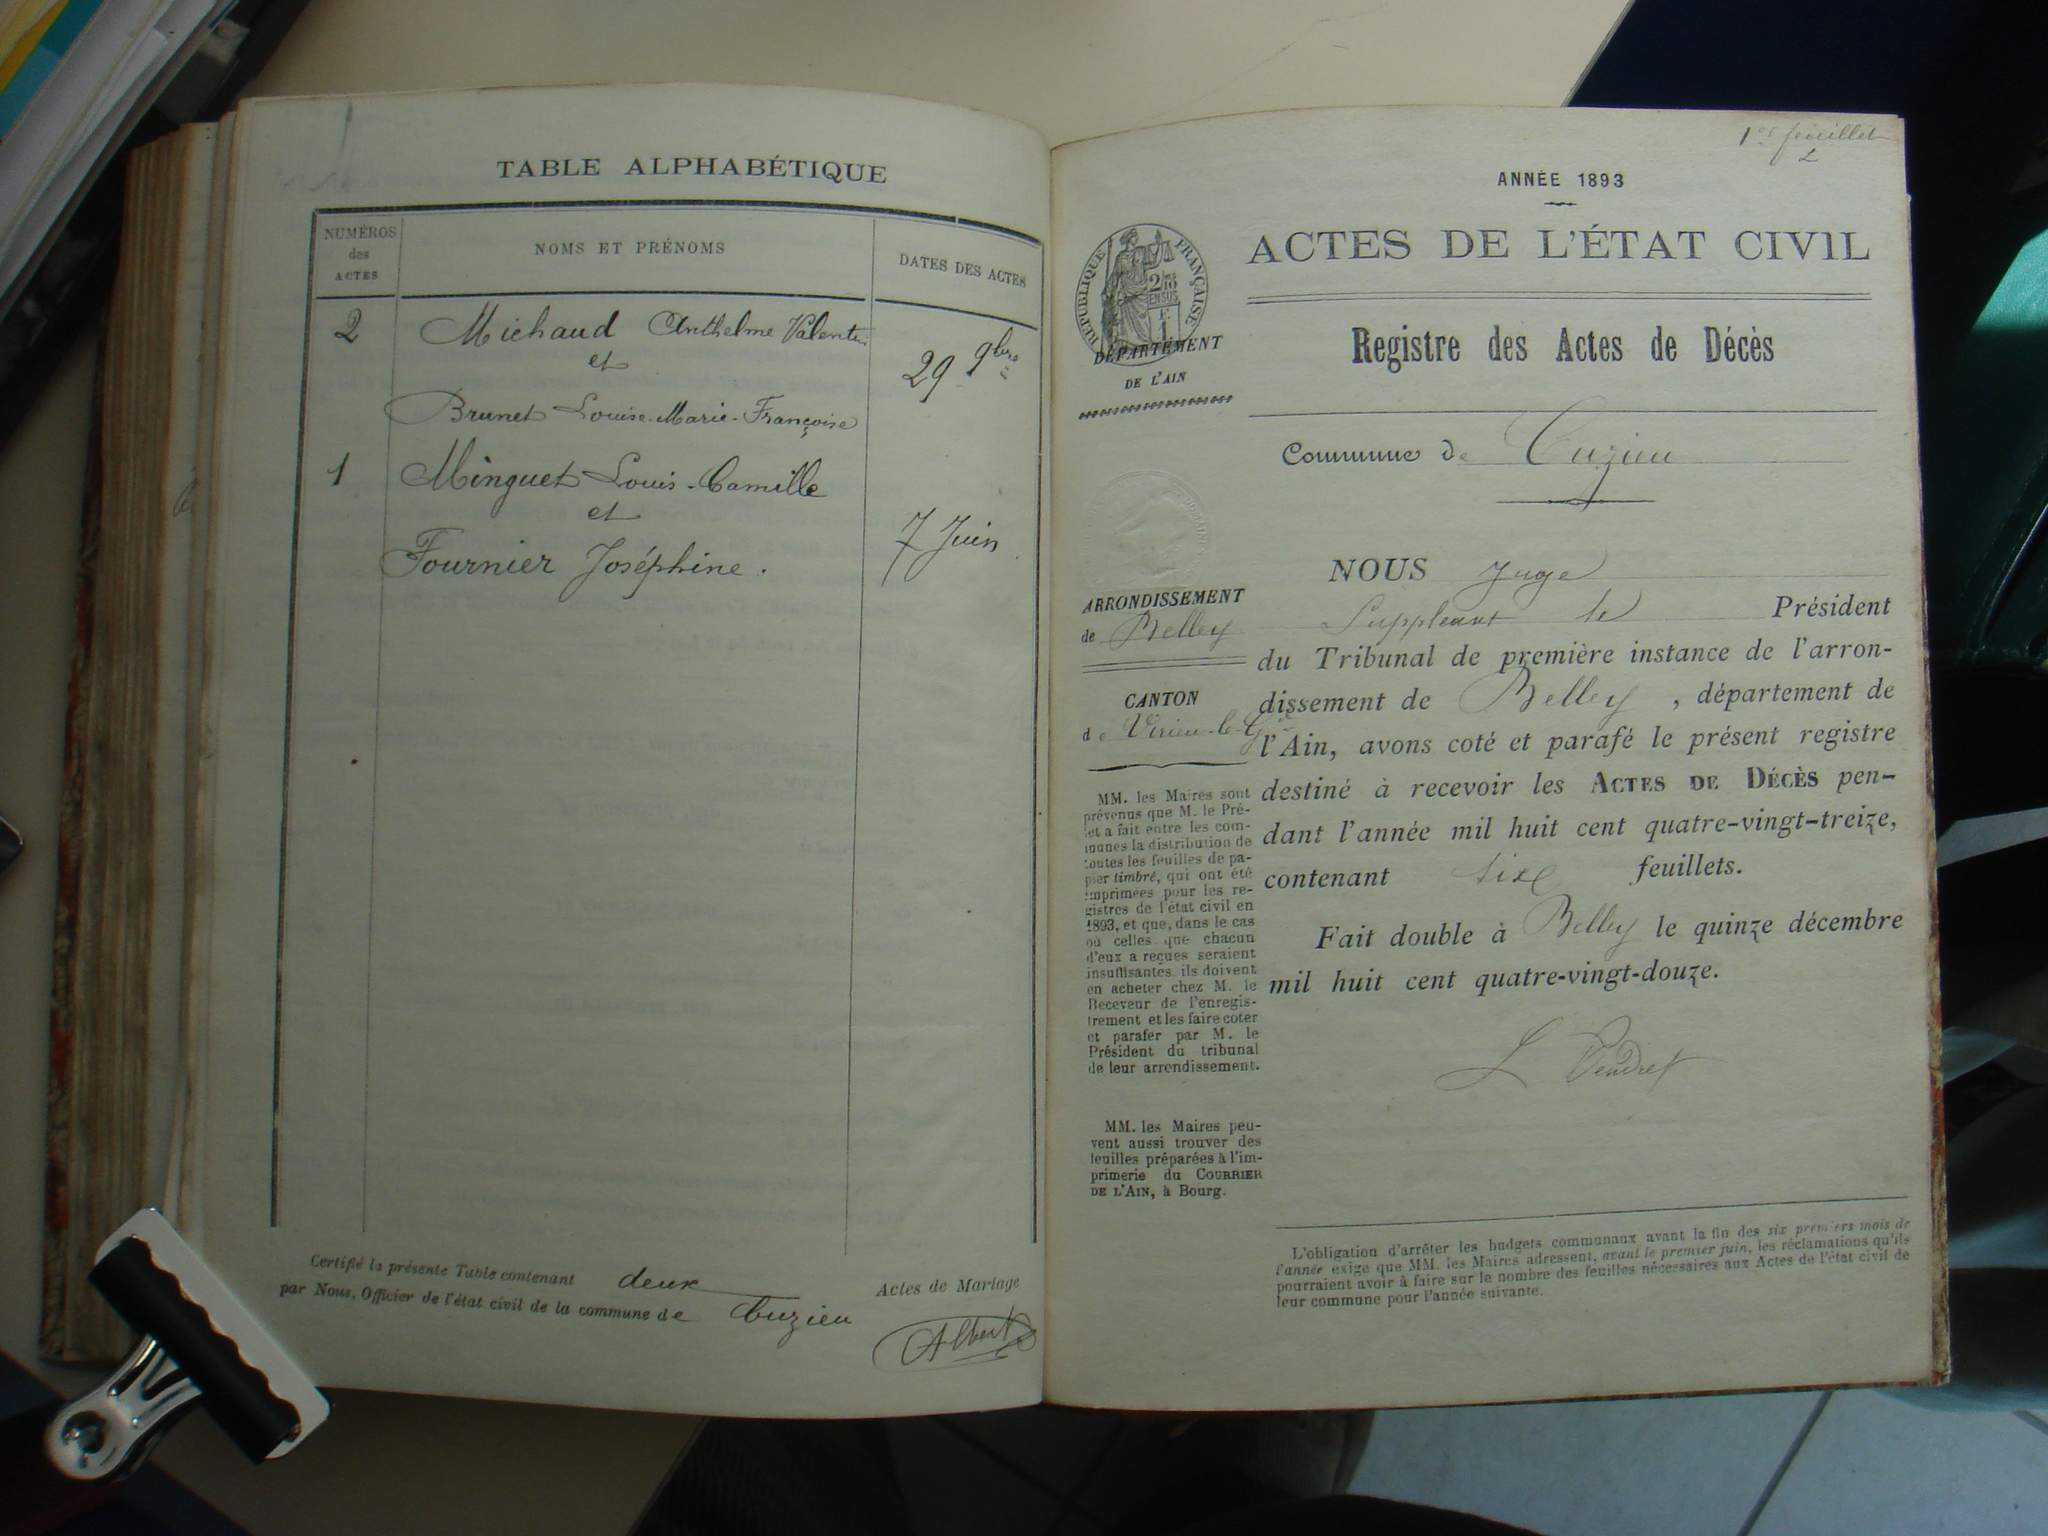 TABLE ALPHABÉTIQUE
NUMÉROS
des
ACTES
NOMS ET PRÉNOMS
DATES DES ACTES
2
Michaud Anthelme Valentin
et
29 9bre
Brunet Louise-Marie-Françoise
1
Minguet Louis-Camille
et
7 Juin
Fournier Joséphine.
Certifié la présente Table contenant deux Actes de Mariage
par Nous, Officier de l'état civil de la commune de Cuzieu
Albert
1er feuillet
ANNÉE 1893
ACTES DE L'ÉTAT CIVIL
RÉPUBLIQUE FRANÇAISE
DÉPARTEMENT
DE L'AIN
Registre des Actes de Décès
Commune de Cuzieu
ARRONDISSEMENT
de Belley
CANTON
de Virieu-le-Gd
MM. les Maires sont
prévenus que M. le Pré-
fet a fait entre les com-
munes la distribution de
toutes les feuilles de pa-
pier timbré, qui ont été
imprimées pour les re-
gistres de l'état civil en
1893, et que, dans le cas
où celles que chacun
d'eux a reçues seraient
insuffisantes ils doivent
en acheter chez M. le
Receveur de l'enregis-
trement et les faire coter
et parafer par M. le
Président du tribunal
de leur arrondissement.
MM. les Maires peu-
vent aussi trouver des
feuilles préparées à l'im-
primerie du COURRIER
DE L'AIN, à Bourg.
NOUS Juge
Suppléant le Président
du Tribunal de première instance de l'arron-
dissement de Belley, département de
l'Ain, avons coté et parafé le présent registre
destiné à recevoir les ACTES DE DÉCÈS pen-
dant l'année mil huit cent quatre-vingt-treize,
contenant six feuillets.
Fait double à Belley le quinze décembre
mil huit cent quatre-vingt-douze.
L'obligation d'arrêter les budgets communaux avant la fin des six premiers mois de
l'année exige que MM. les Maires adressent, avant le premier juin, les réclamations qu'ils
pourraient avoir à faire sur le nombre des feuilles nécessaires aux Actes de l'état civil de
leur commune pour l'année suivante.